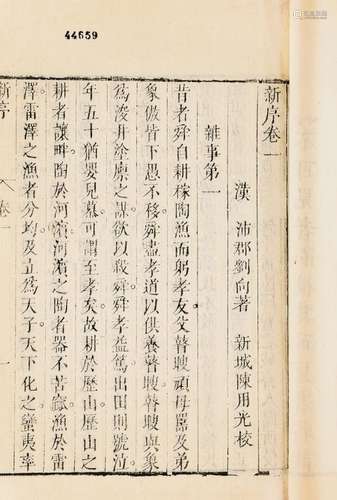 44659
新序卷一
漢　沛郡劉向著　新城陳用光校
雜事第一
昔者舜自耕稼陶漁而躬孝友父瞽瞍頑母嚚及弟
象傲皆下愚不移舜盡孝道以供養瞽瞍瞽瞍與象
為浚井塗廩之謀欲以殺舜舜孝益篤出田則號泣
年五十猶嬰兒慕可謂至孝矣故耕於歷山歷山之
耕者讓畔陶於河濱河濱之陶者器不苦窳漁於雷
澤雷澤之漁者分均及立為天子天下化之蠻夷率
新序
卷一
一